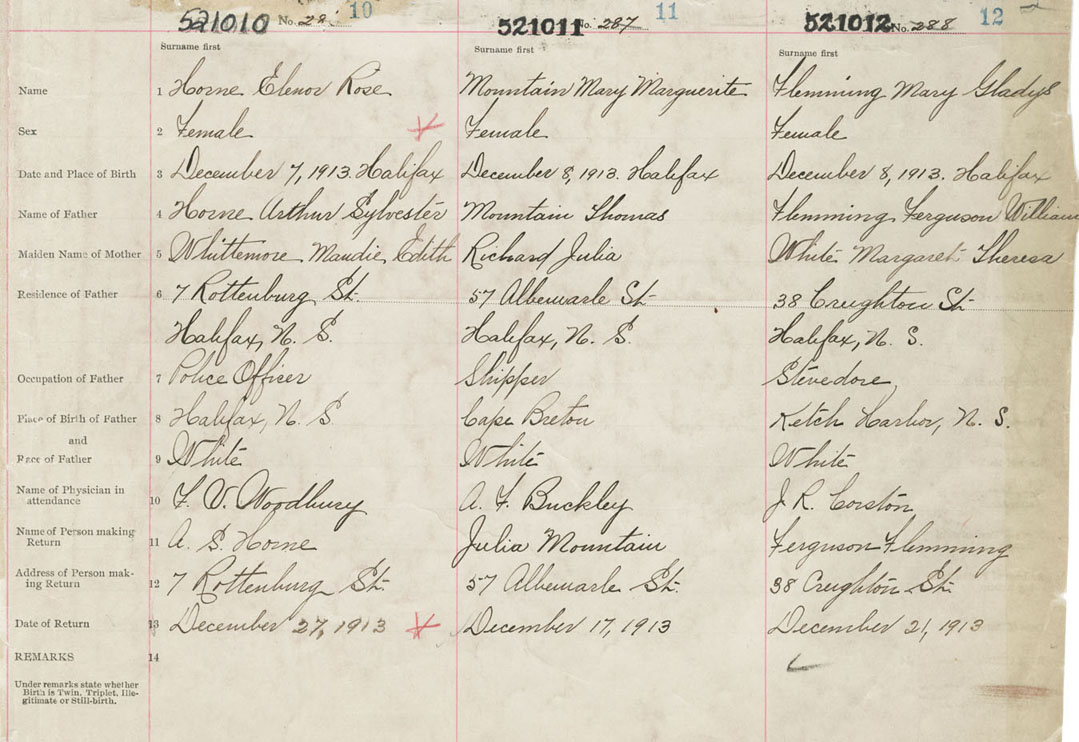 521010 No. 28 10 521011 No. 287 11 521012 No. 288 12
Surname first Surname first Surname first
Name 1 Horne Elenor Rose Mountain Mary Marguerite Flemming Mary Gladys
Sex 2 Female Female Female
Date and Place of Birth 3 December 7, 1913. Halifax December 8, 1913. Halifax December 8, 1913. Halifax
Name of Father 4 Horne Arthur Sylvester Mountain Thomas Flemming Ferguson William
Maiden Name of Mother 5 Whittemore Maudie Edith Richard Julia White Margaret Theresa
Residence of Father 6 7 Rottenburg St. 57 Albemarle St. 38 Creighton St.
Halifax, N. S. Halifax, N. S. Halifax, N. S.
Occupation of Father 7 Police Officer Shipper Stevedore
Place of Birth of Father 8 Halifax, N. S. Cape Breton Ketch Harbor, N. S.
and
Race of Father 9 White White White
Name of Physician in
attendance 10 F. V. Woodbury A. F. Buckley J. R. Corston
Name of Person making
Return 11 A. S. Horne Julia Mountain Ferguson Flemming
Address of Person mak-
ing Return 12 7 Rottenburg St. 57 Albemarle St. 38 Creighton St.
Date of Return 13 December 27, 1913 December 17, 1913 December 21, 1913
REMARKS 14
Under remarks state whether
Birth is Twin, Triplet, Ille-
gitimate or Still-birth.